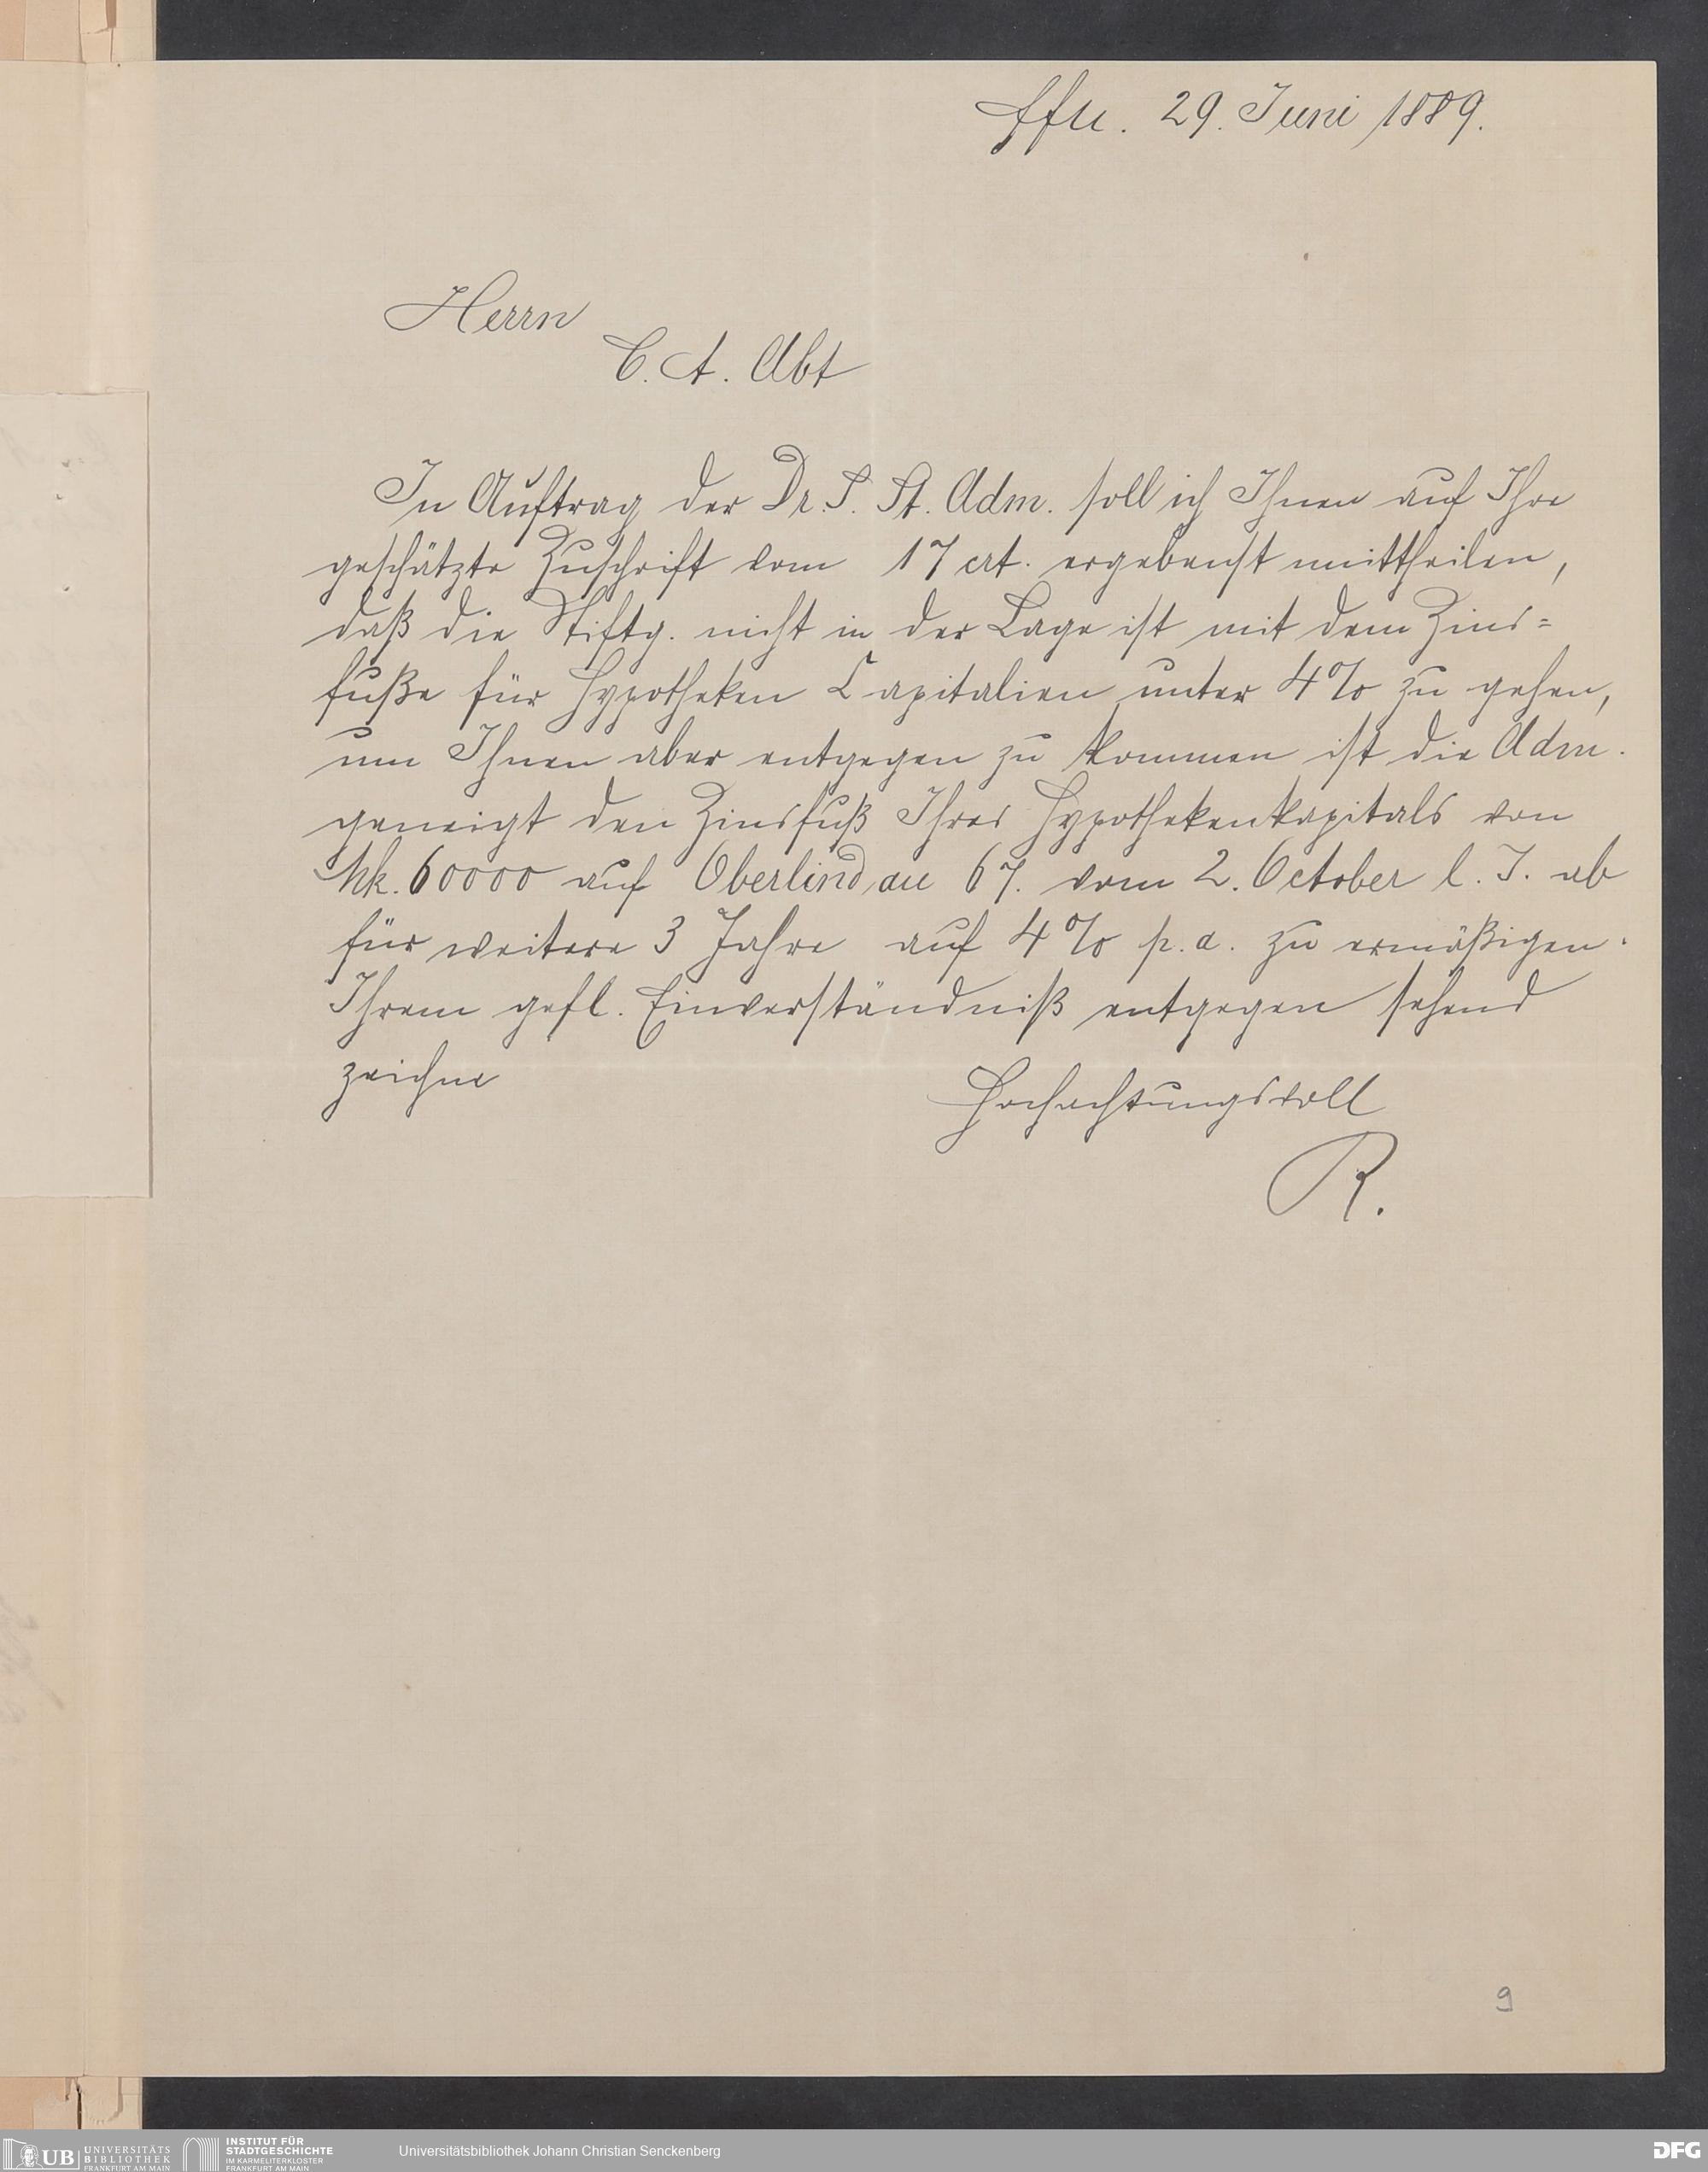 Ffm. 29. Juni 1889.
Herrn
C. A. Abt
In Auftrag der Dr. S. St. Adm. soll ich Ihnen auf Ihre
geschätzte Zuschrift vom 17 crt. ergebenst mittheilen,
daß die Stiftg. nicht in der Lage ist mit dem Zins=
fuße für Hypotheken Capitalien unter 4% zu gehen,
um Ihnen aber entgegen zu kommen ist die Adm.
geneigt den Zinsfuß Ihres Hypothekenkapitals von
Mk. 60000 auf Oberlindau 67. vom 2. October l. J. ab
für weitere 3 Jahre auf 4% p. a. zu ermäßigen.
Ihrem gefl. Einverständniß entgegen sehend
zeichne
Hochachtungsvoll
R.
9
UB UNIVERSITÄTS
BIBLIOTHEK
FRANKFURT AM MAIN
INSTITUT FÜR
STADTGESCHICHTE
IM KARMELITERKLOSTER
FRANKFURT AM MAIN
Universitätsbibliothek Johann Christian Senckenberg
DFG